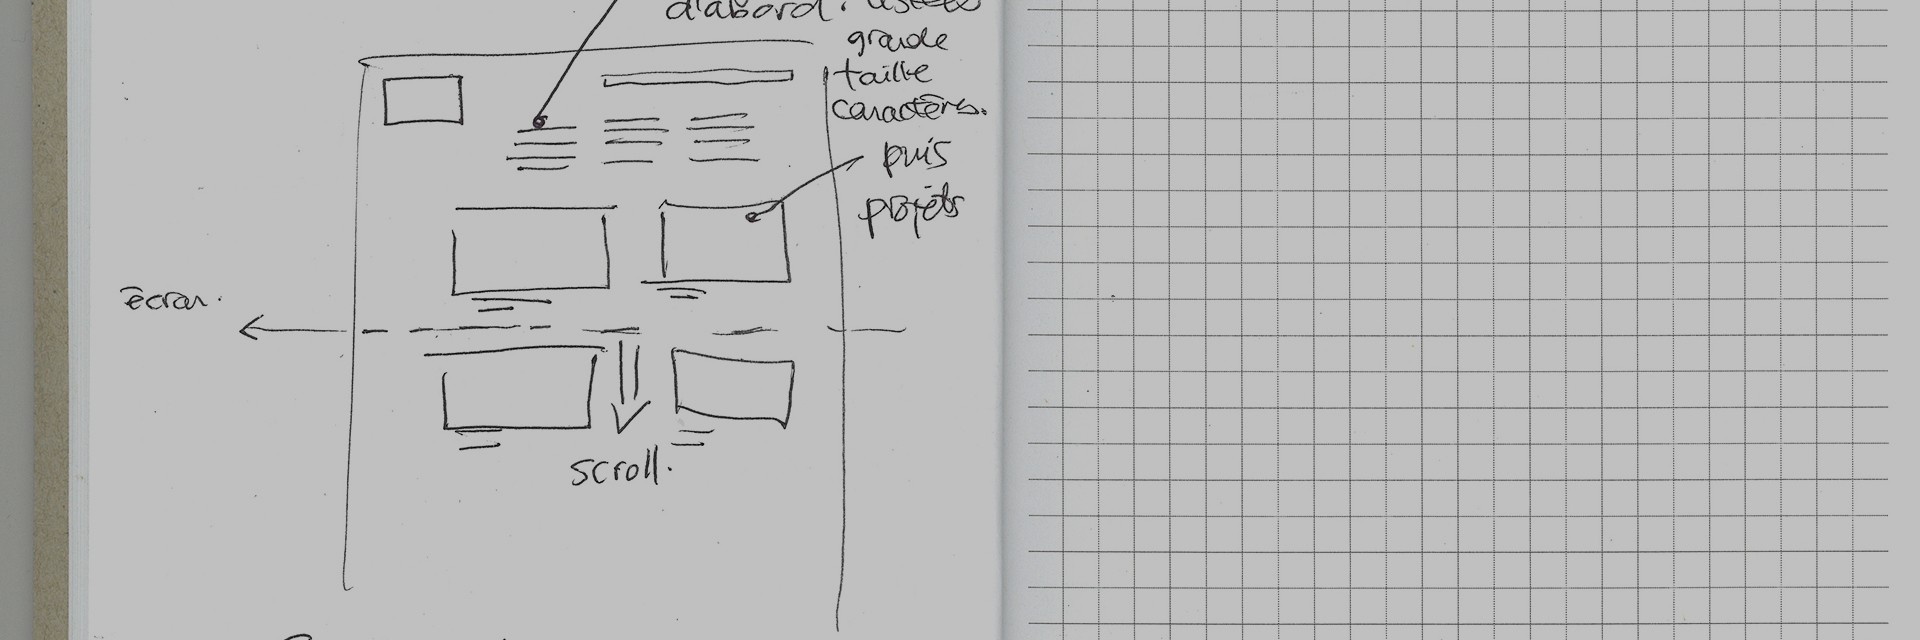 d'abord.
grande
taille
caractères.
puis
projets
écran.
scroll.